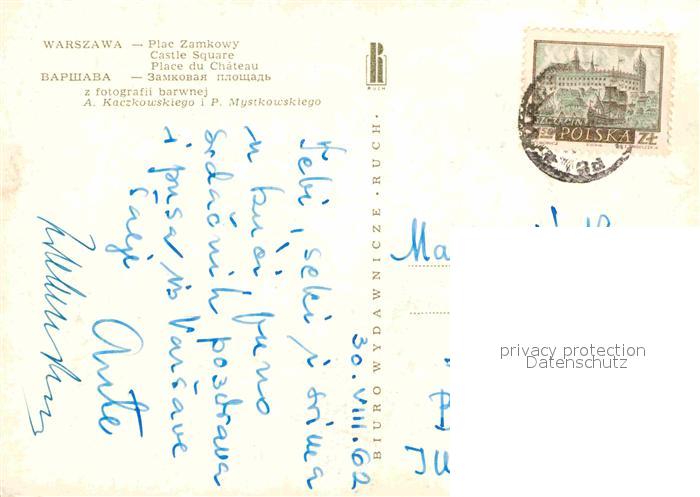 WARSZAWA — Plac Zamkowy
Castle Square
Place du Château
ВАРШАВА — Замковая площадь
z fotografii barwnej
A. Kaczkowskiego i P. Mystkowskiego
RUCH
BIURO WYDAWNICZE · RUCH ·
SZCZECIN
POLSKA ZŁ
30. VIII. 62
Tebi, seki i svima
u kući puno
srdačnih pozdrava
i pusa iz Varšave
šalje
Ante
Ma
privacy protection
Datenschutz